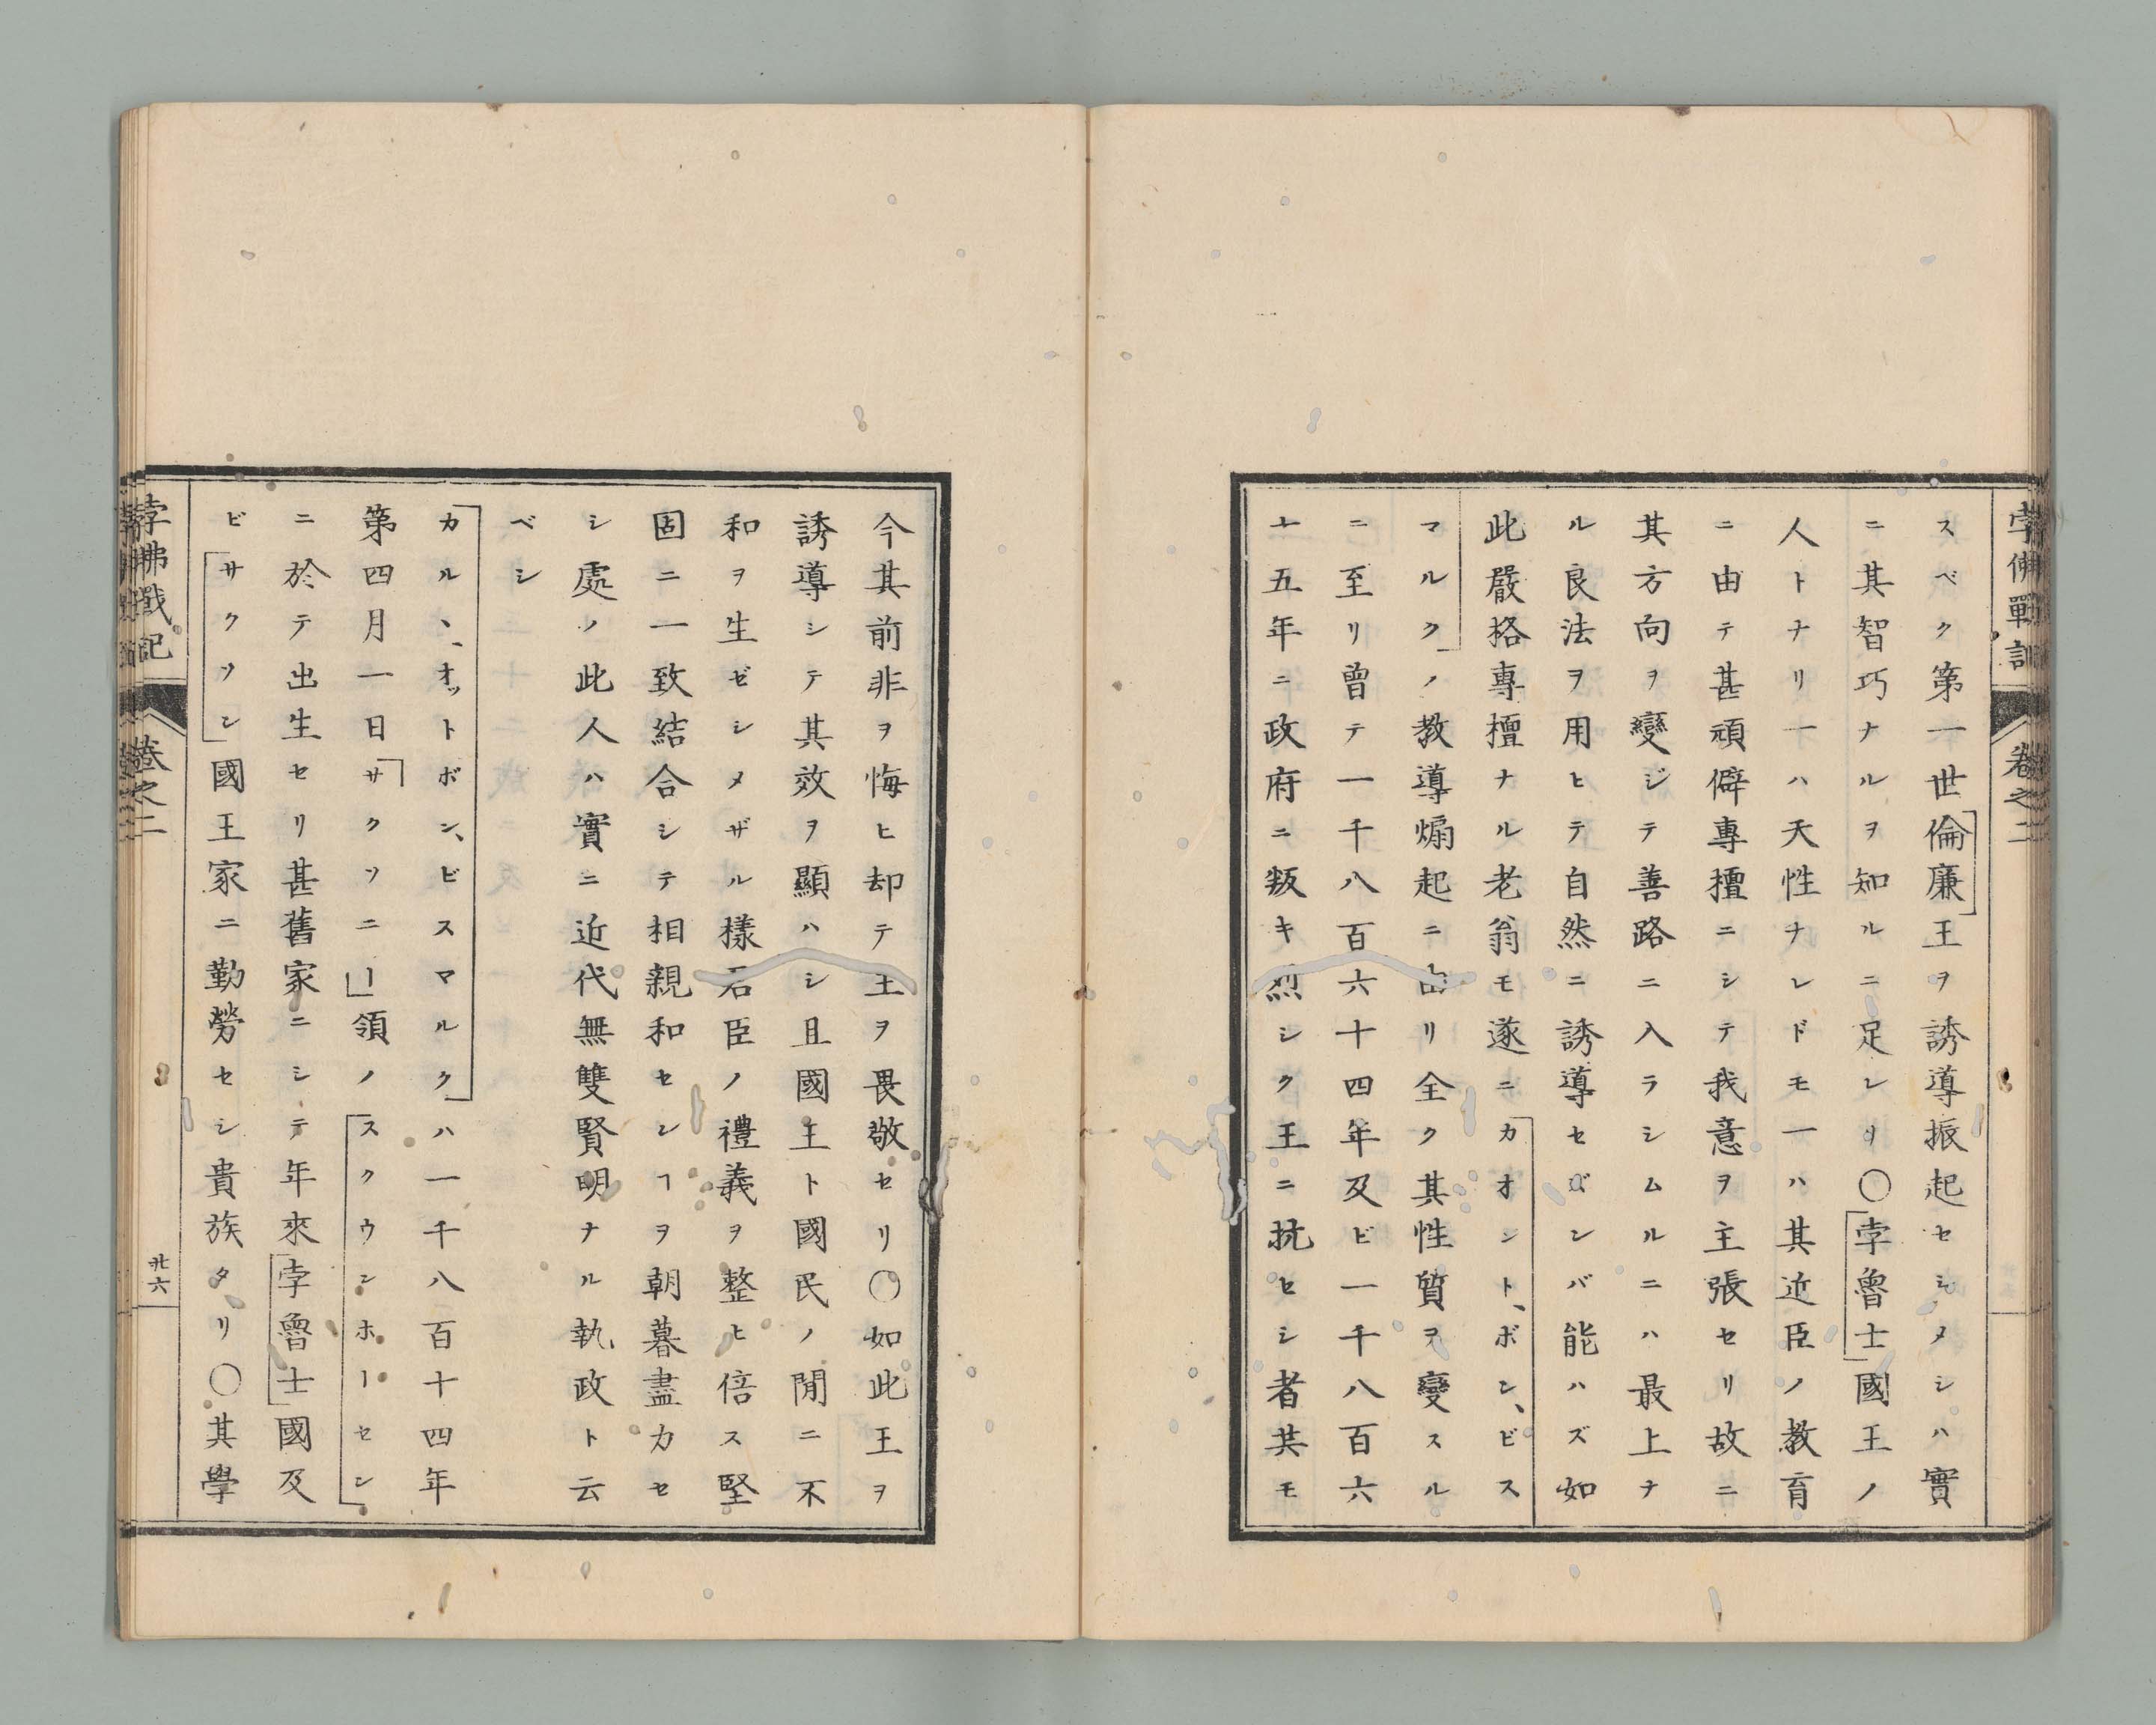 孛佛戰記
卷之二
スベク第一世倫廉王ヲ誘導振起セシメシハ實
ニ其智巧ナルヲ知ルニ足レリ〇孛魯士國王ノ
人トナリ一ハ天性ナレドモ一ハ其近臣ノ教育
ニ由テ甚頑僻專擅ニシテ我意ヲ主張セリ故ニ
其方向ヲ變ジテ善路ニ入ラシムルニハ最上ナ
ル良法ヲ用ヒテ自然ニ誘導セズンバ能ハズ如
此嚴格專擅ナル老翁モ遂ニカオント、ボン、ビス
マルクノ教導煽起ニ由リ全ク其性質ヲ變スル
ニ至リ曾テ一千八百六十四年及ビ一千八百六
十五年ニ政府ニ叛キ烈シク王ニ抗セシ者共モ
今其前非ヲ悔ヒ却テ王ヲ畏敬セリ〇如此王ヲ
誘導シテ其效ヲ顯ハシ且國王ト國民ノ間ニ不
和ヲ生ゼシメザル様君臣ノ禮義ヲ整ヒ倍ス堅
固ニ一致結合シテ相親和センヿヲ朝暮盡力セ
シ處ノ此人ハ實ニ近代無雙賢明ナル執政ト云
ベシ
カル、、オットボン、ビスマルクハ一千八百十四年
第四月一日サクソニー領ノスクウンホーセン
ニ於テ出生セリ甚舊家ニシテ年來孛魯士國及
ビサクソン國王家ニ勤勞セシ貴族タリ〇其學
孛佛戰記
卷之二
廿六